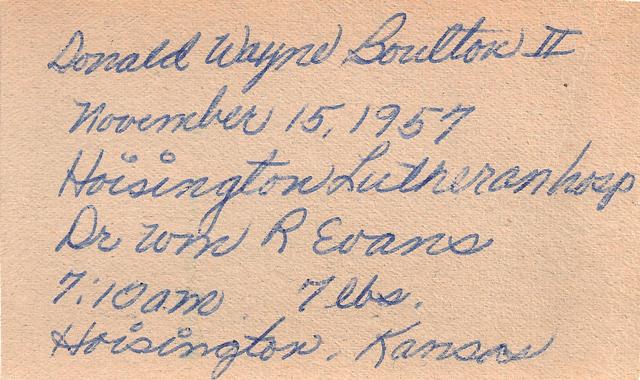 Donald Wayne Boulton II
November 15, 1957
Hoisington Lutheran hosp
Dr Wm R Evans
7:10 am 7 lbs.
Hoisington, Kansas